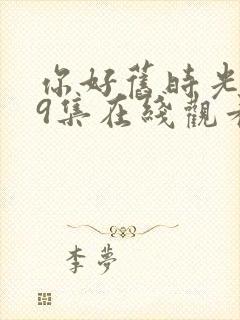 你好舊時光
9集在綫觀看
李夢